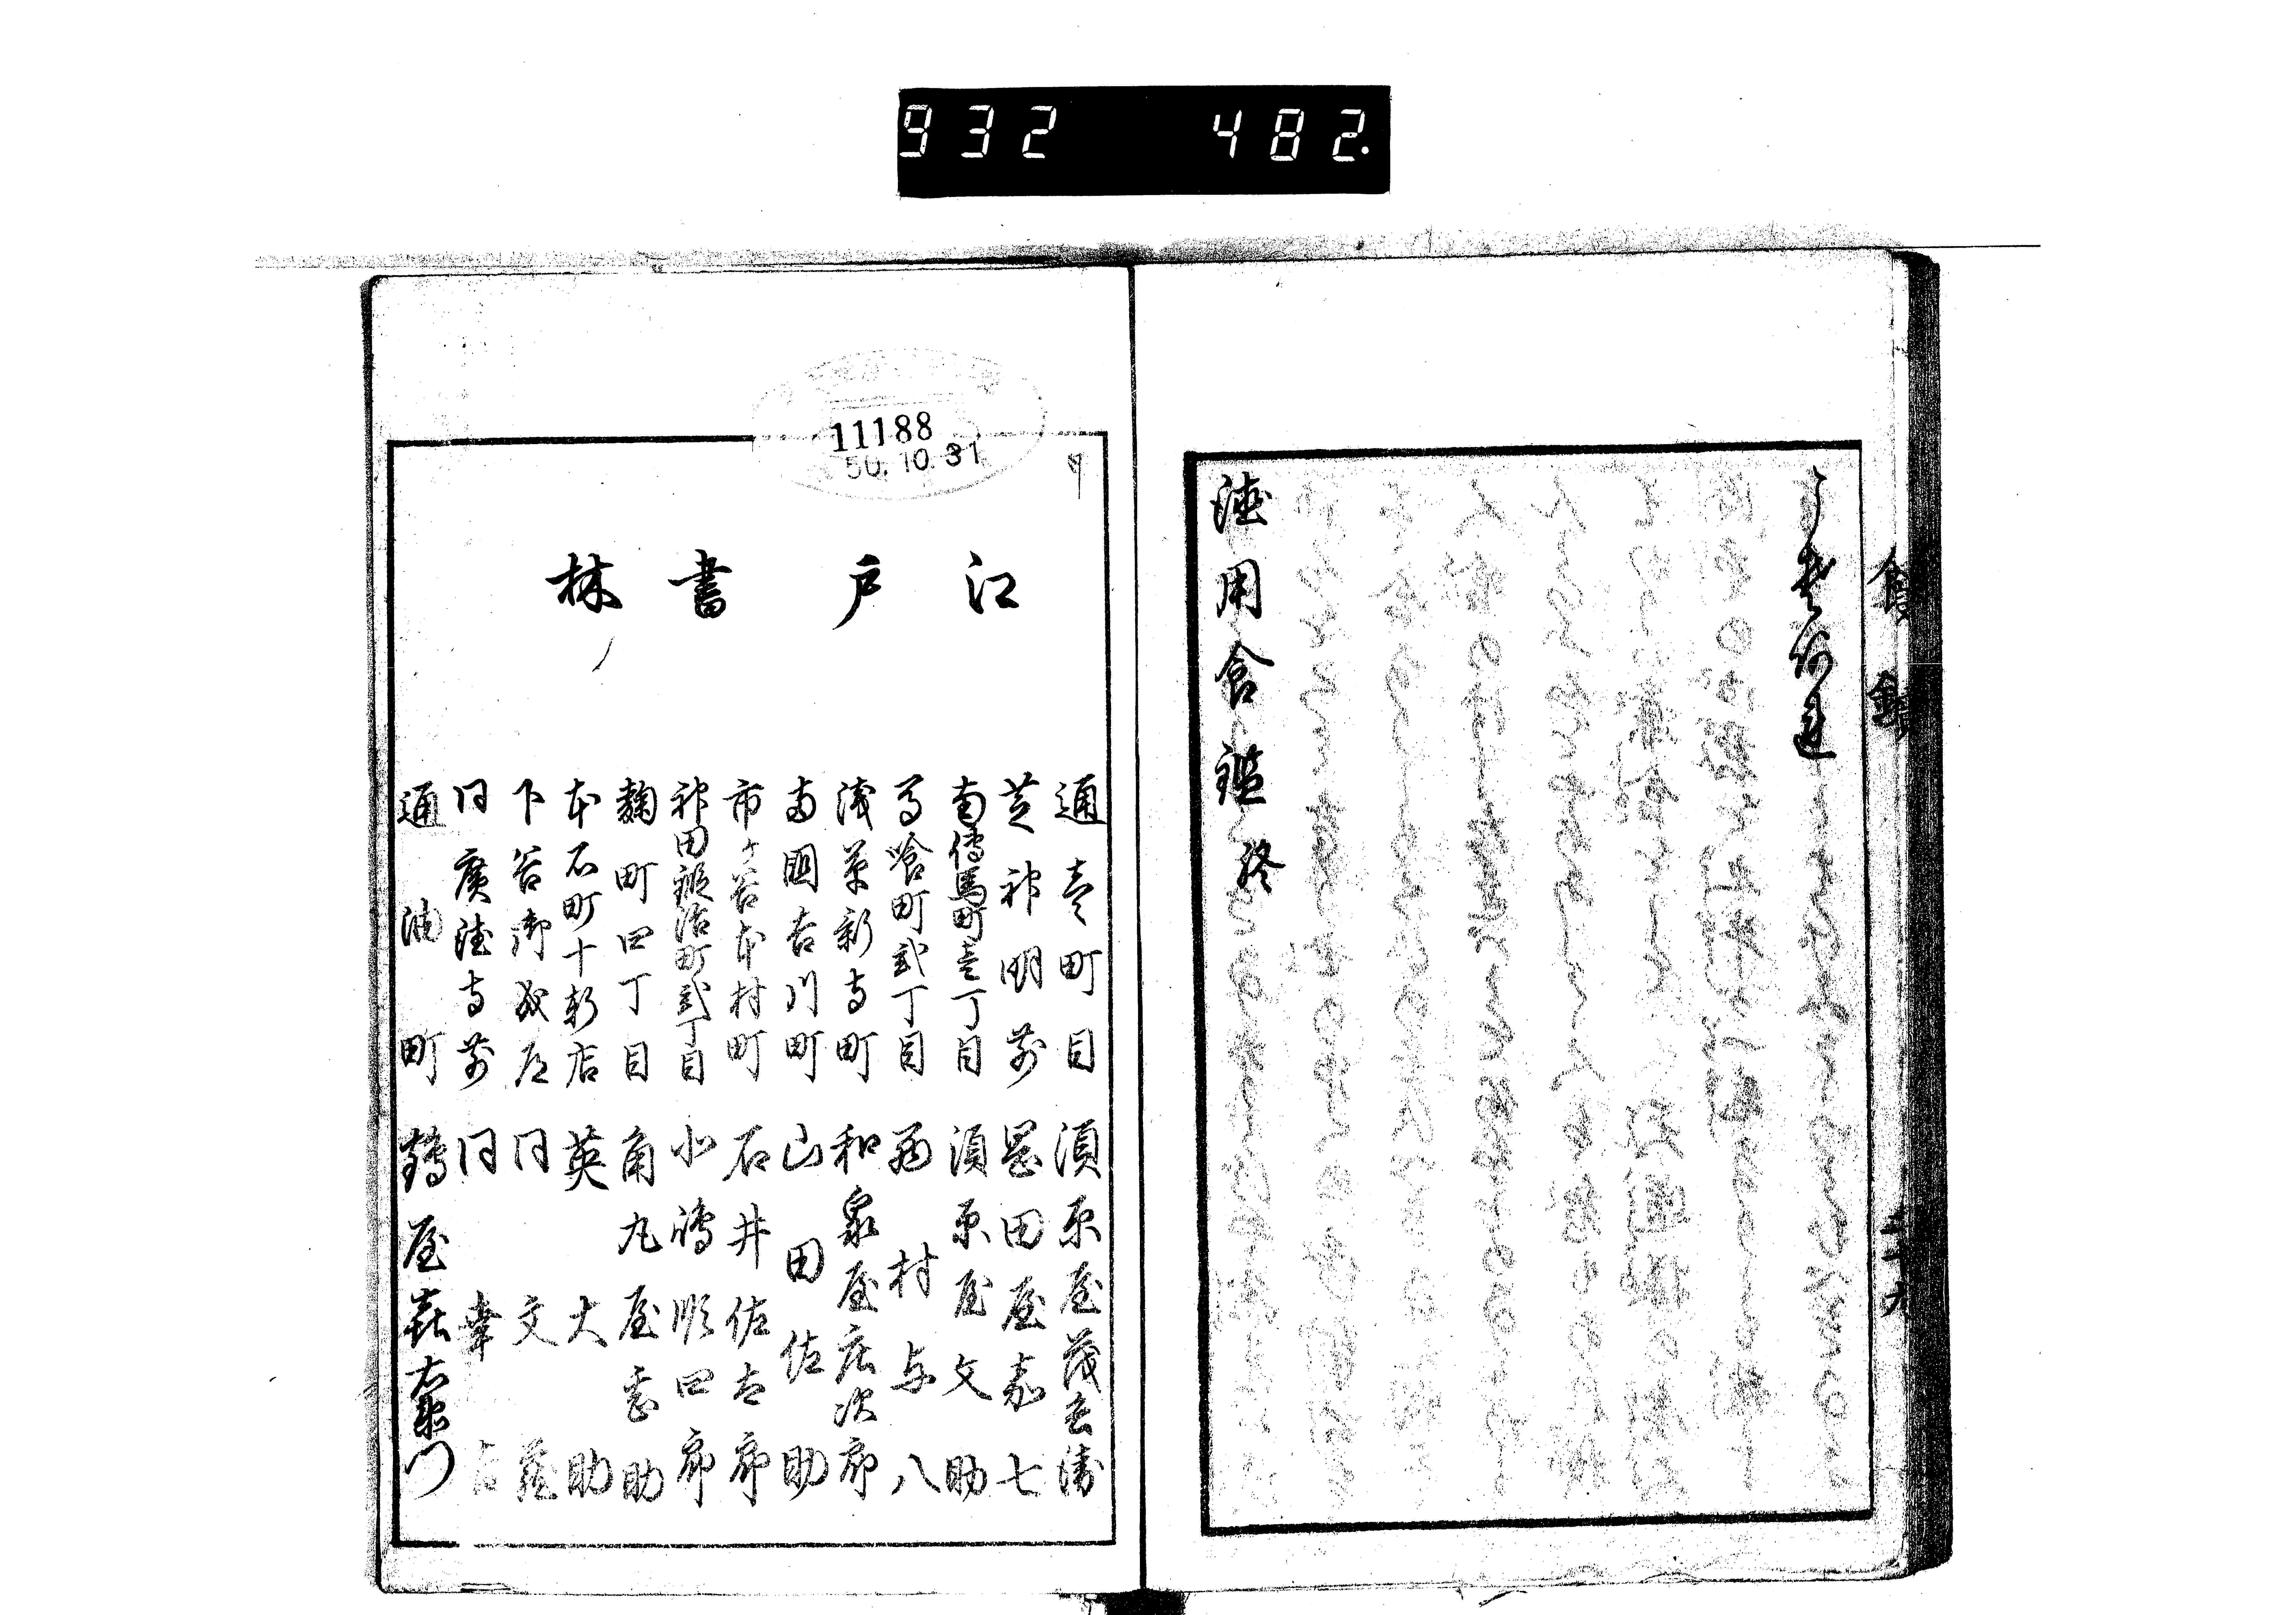 932 482.
食鑑
二十九
徳用食鑑終
11188
50.10.31
江戸書林
通壱町目 須原屋茂兵衛
芝神明前 岡田屋嘉七
南傳馬町壱丁目 須原屋文助
馬喰町弐丁目 西村与八
浅草新寺町 和泉屋庄次郎
両国吉川町 山田佐助
市ヶ谷本村町 石井佐太郎
神田鍛冶町弐丁目 北嶋順四郎
麹町四丁目 角丸屋甚助
本石町十軒店 英大助
下谷御成道 同文蔵
同廣徳寺前 同幸吉
通油町 鶴屋喜右衛門